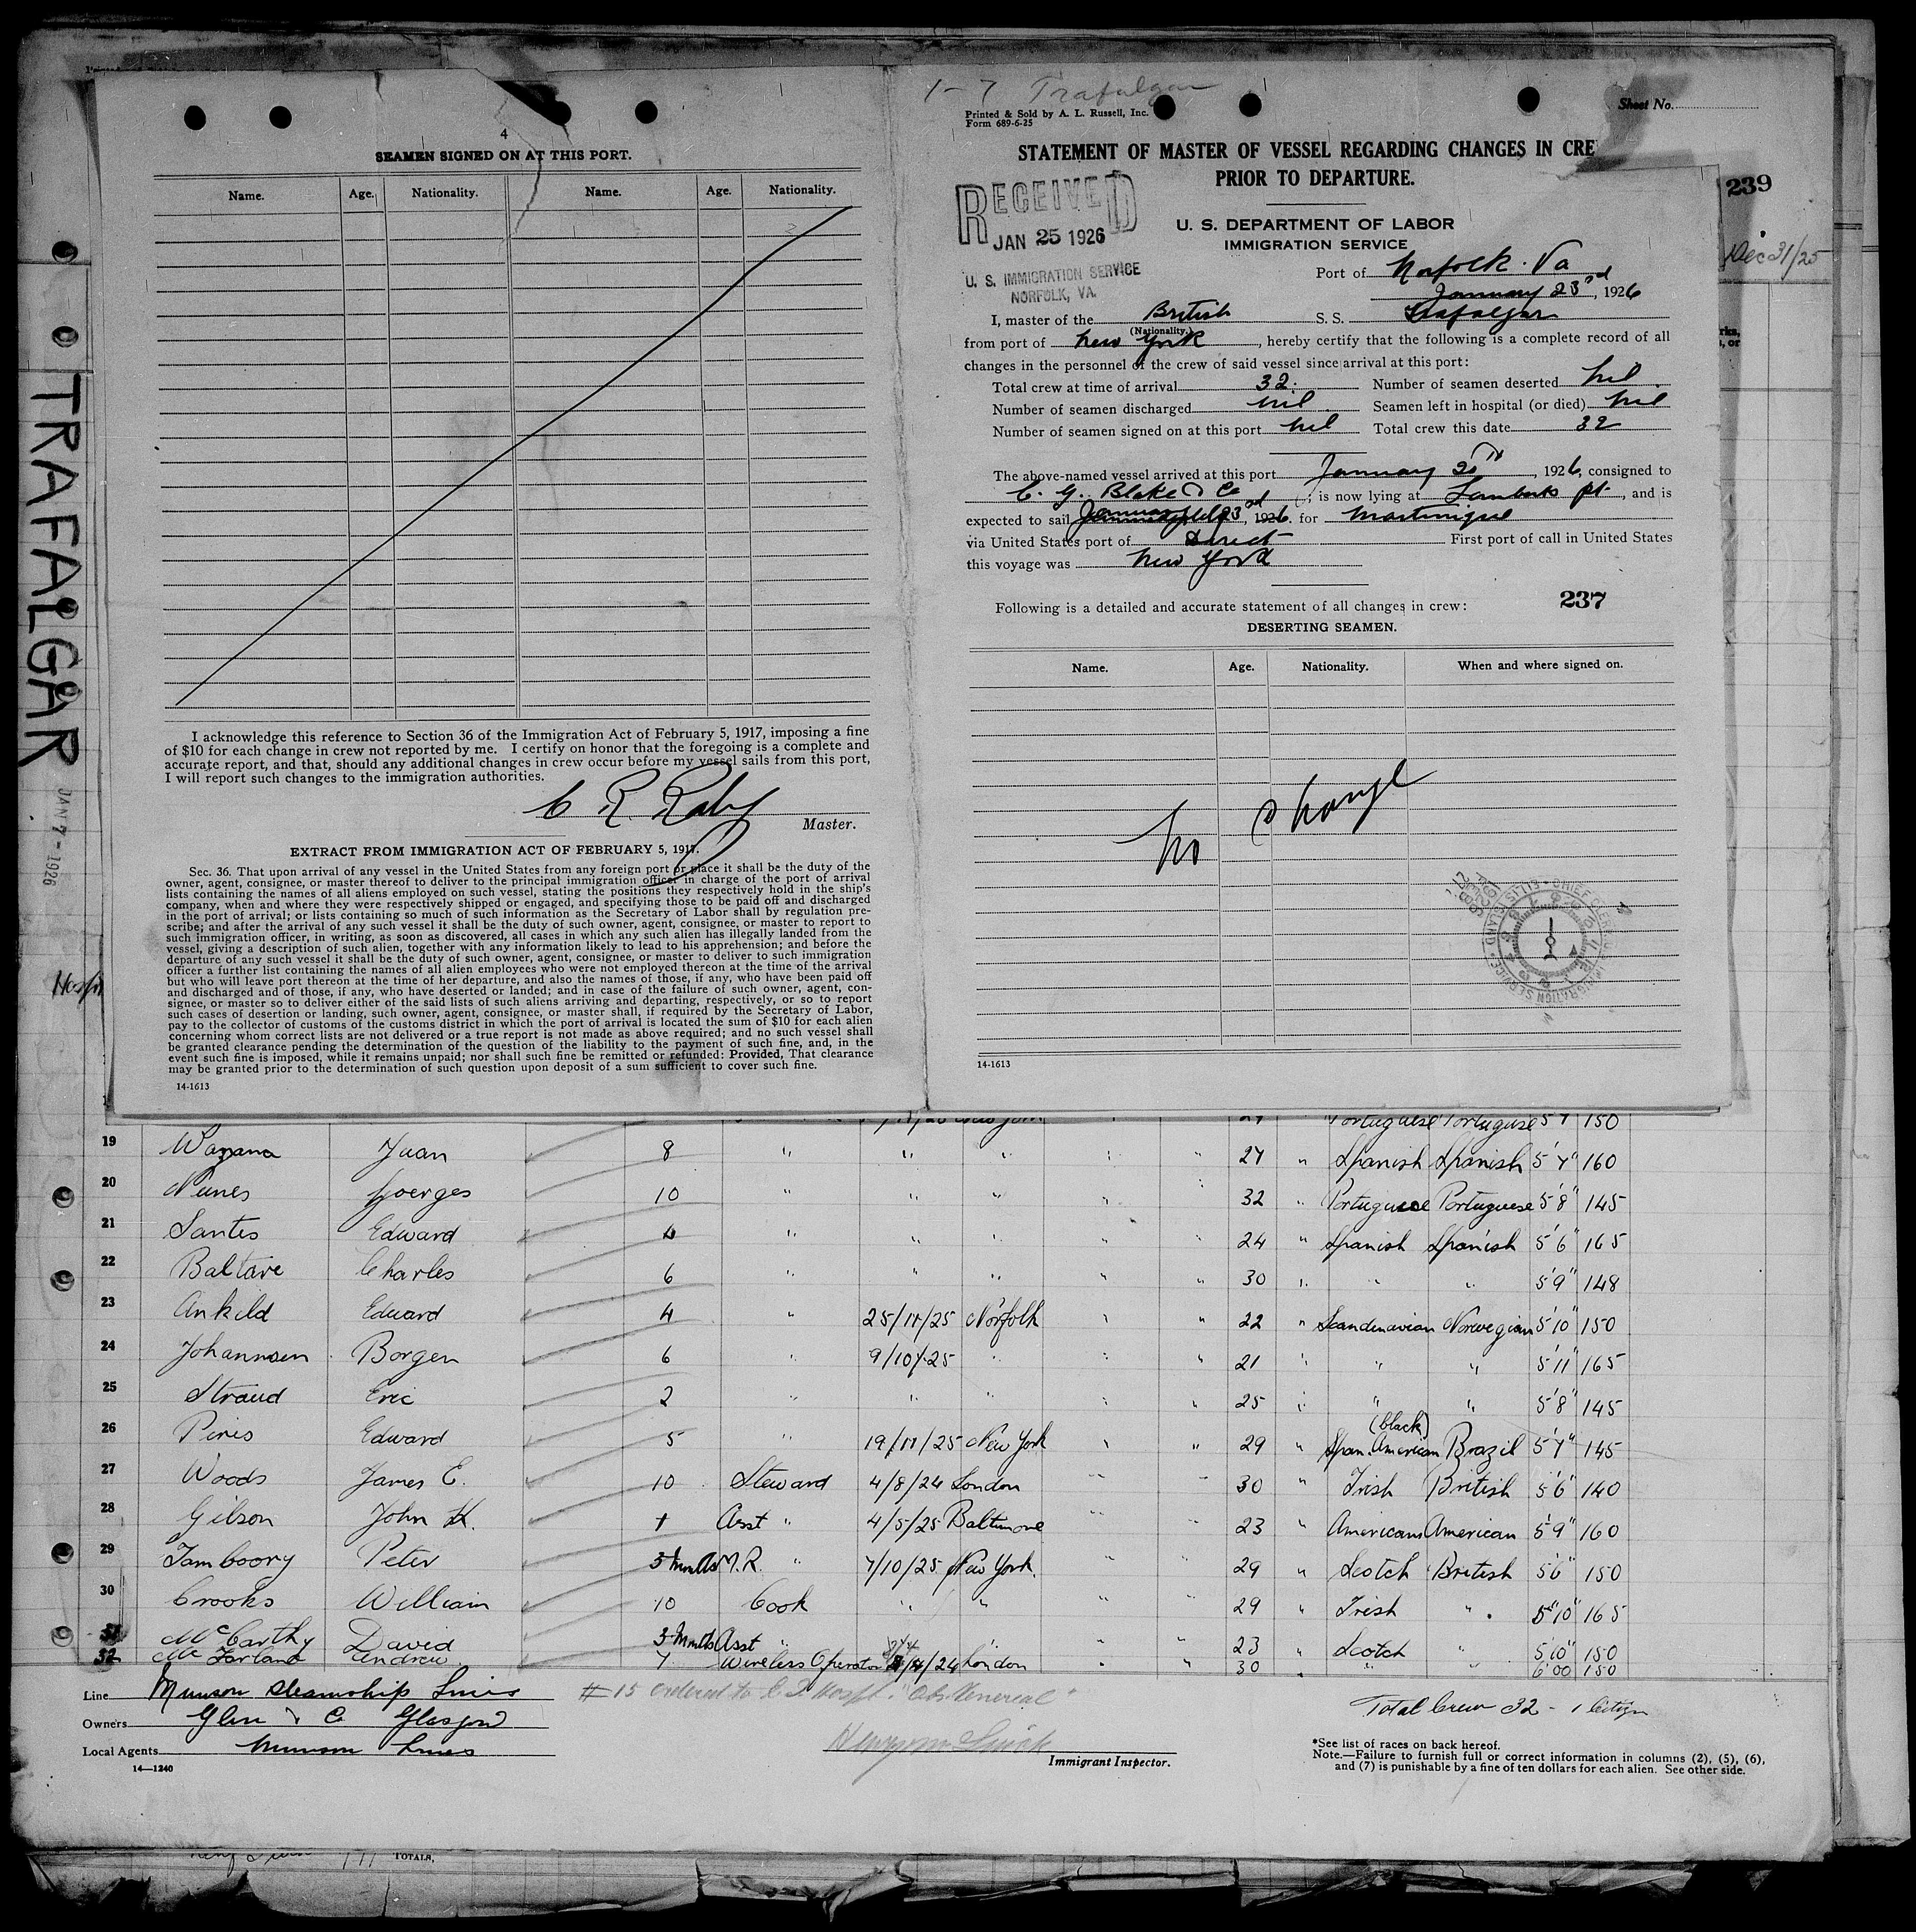 4
SEAMEN SIGNED ON AT THIS PORT.
Name. Age. Nationality. Name. Age. Nationality.
I acknowledge this reference to Section 36 of the Immigration Act of February 5, 1917, imposing a fine
of $10 for each change in crew not reported by me. I certify on honor that the foregoing is a complete and
accurate report, and that, should any additional changes in crew occur before my vessel sails from this port,
I will report such changes to the immigration authorities.
C R Raby
Master.
EXTRACT FROM IMMIGRATION ACT OF FEBRUARY 5, 1917.
Sec. 36. That upon arrival of any vessel in the United States from any foreign port or place it shall be the duty of the
owner, agent, consignee, or master thereof to deliver to the principal immigration officer in charge of the port of arrival
lists containing the names of all aliens employed on such vessel, stating the positions they respectively hold in the ship's
company, when and where they were respectively shipped or engaged, and specifying those to be paid off and discharged
in the port of arrival; or lists containing so much of such information as the Secretary of Labor shall by regulation pre-
scribe; and after the arrival of any such vessel it shall be the duty of such owner, agent, consignee, or master to report to
such immigration officer, in writing, as soon as discovered, all cases in which any such alien has illegally landed from the
vessel, giving a description of such alien, together with any information likely to lead to his apprehension; and before the
departure of any such vessel it shall be the duty of such owner, agent, consignee, or master to deliver to such immigration
officer a further list containing the names of all alien employees who were not employed thereon at the time of the arrival
but who will leave port thereon at the time of her departure, and also the names of those, if any, who have been paid off
and discharged and of those, if any, who have deserted or landed; and in case of the failure of such owner, agent, con-
signee, or master so to deliver either of the said lists of such aliens arriving and departing, respectively, or so to report
such cases of desertion or landing, such owner, agent, consignee, or master shall, if required by the Secretary of Labor,
pay to the collector of customs of the customs district in which the port of arrival is located the sum of $10 for each alien
concerning whom correct lists are not delivered or a true report is not made as above required; and no such vessel shall
be granted clearance pending the determination of the question of the liability to the payment of such fine, and, in the
event such fine is imposed, while it remains unpaid; nor shall such fine be remitted or refunded: Provided, That clearance
may be granted prior to the determination of such question upon deposit of a sum sufficient to cover such fine.
14-1613
1-7 Trafalgar
Printed & Sold by A. L. Russell, Inc.
Form 689-6-25
Sheet No.
STATEMENT OF MASTER OF VESSEL REGARDING CHANGES IN CRE
PRIOR TO DEPARTURE.
RECEIVED
JAN 25 1926
U. S. IMMIGRATION SERVICE
NORFOLK, VA.
U. S. DEPARTMENT OF LABOR
IMMIGRATION SERVICE
Port of Norfolk. Va
January 23rd, 1926
I, master of the British S. S. Trafalgar
(Nationality.)
from port of New York, hereby certify that the following is a complete record of all
changes in the personnel of the crew of said vessel since arrival at this port:
Total crew at time of arrival 32. Number of seamen deserted nil
Number of seamen discharged nil Seamen left in hospital (or died) nil
Number of seamen signed on at this port nil Total crew this date 32
The above-named vessel arrived at this port January 20th, 1926, consigned to
C. G. Blake & Co; is now lying at Lamberts pt., and is
expected to sail January 23rd, 1926. for Martinique
via United States port of Direct First port of call in United States
this voyage was New York
Following is a detailed and accurate statement of all changes in crew: 237
DESERTING SEAMEN.
Name. Age. Nationality. When and where signed on.
No Change
14-1613
239
Dec 31/25
TRAFALGAR
JAN 7 - 1926
Portuguese Portuguese 150
19 Juan 8 " " " " " 27 " Spanish Spanish 5'7" 160
20 Nunes Goerges 10 " " " " 32 " Portuguese Portuguese 5'8" 145
21 Santes Edward 4 " " " " " 24 " Spanish Spanish 5'6" 165
22 Baltare Charles 6 " " " " " 30 " " " 5'9" 148
23 Ankild Edward 4 " 25/11/25 Norfolk " " 22 " Scandinavian Norwegian 5'10" 150
24 Johannsen Borgen 6 " 9/10/25 " " " 21 " " " 5'11" 165
25 Straud Eric 2 " " " " " 25 " " " 5'8" 145
26 Pires Edward 5 " 19/11/25 New York " " 29 " (black) Span. American Brazil 5'7" 145
27 Woods James E. 10 Steward 4/8/24 London " " 30 " Irish British 5'6" 140
28 Gilson John H. 1 Asst " 4/5/25 Baltimore " " 23 " American American 5'9" 160
29 Tamboory Peter 3 Mnths M.R. " 7/10/25 New York. " " 29 " Scotch British 5'6" 150
30 Crooks William 10 Cook " " " " 29 " Irish " 5'10" 165
31 McCarthy David 3 Mnths Asst " " " 23 " Scotch " 5'10" 150
32 McFarland Andrew 7 Wireless Operator /24 London " " 30 " " " 6'00 150
Line Munson Steamship Lines
Owners Glen & Co Glasgow
Local Agents Munson Lines
14—1240
#15 ordered to Hospt. "Obs. Venereal"
Immigrant Inspector.
Total Crew 32 - 1 Citizn
*See list of races on back hereof.
Note.—Failure to furnish full or correct information in columns (2), (5), (6),
and (7) is punishable by a fine of ten dollars for each alien. See other side.
TOTALS.